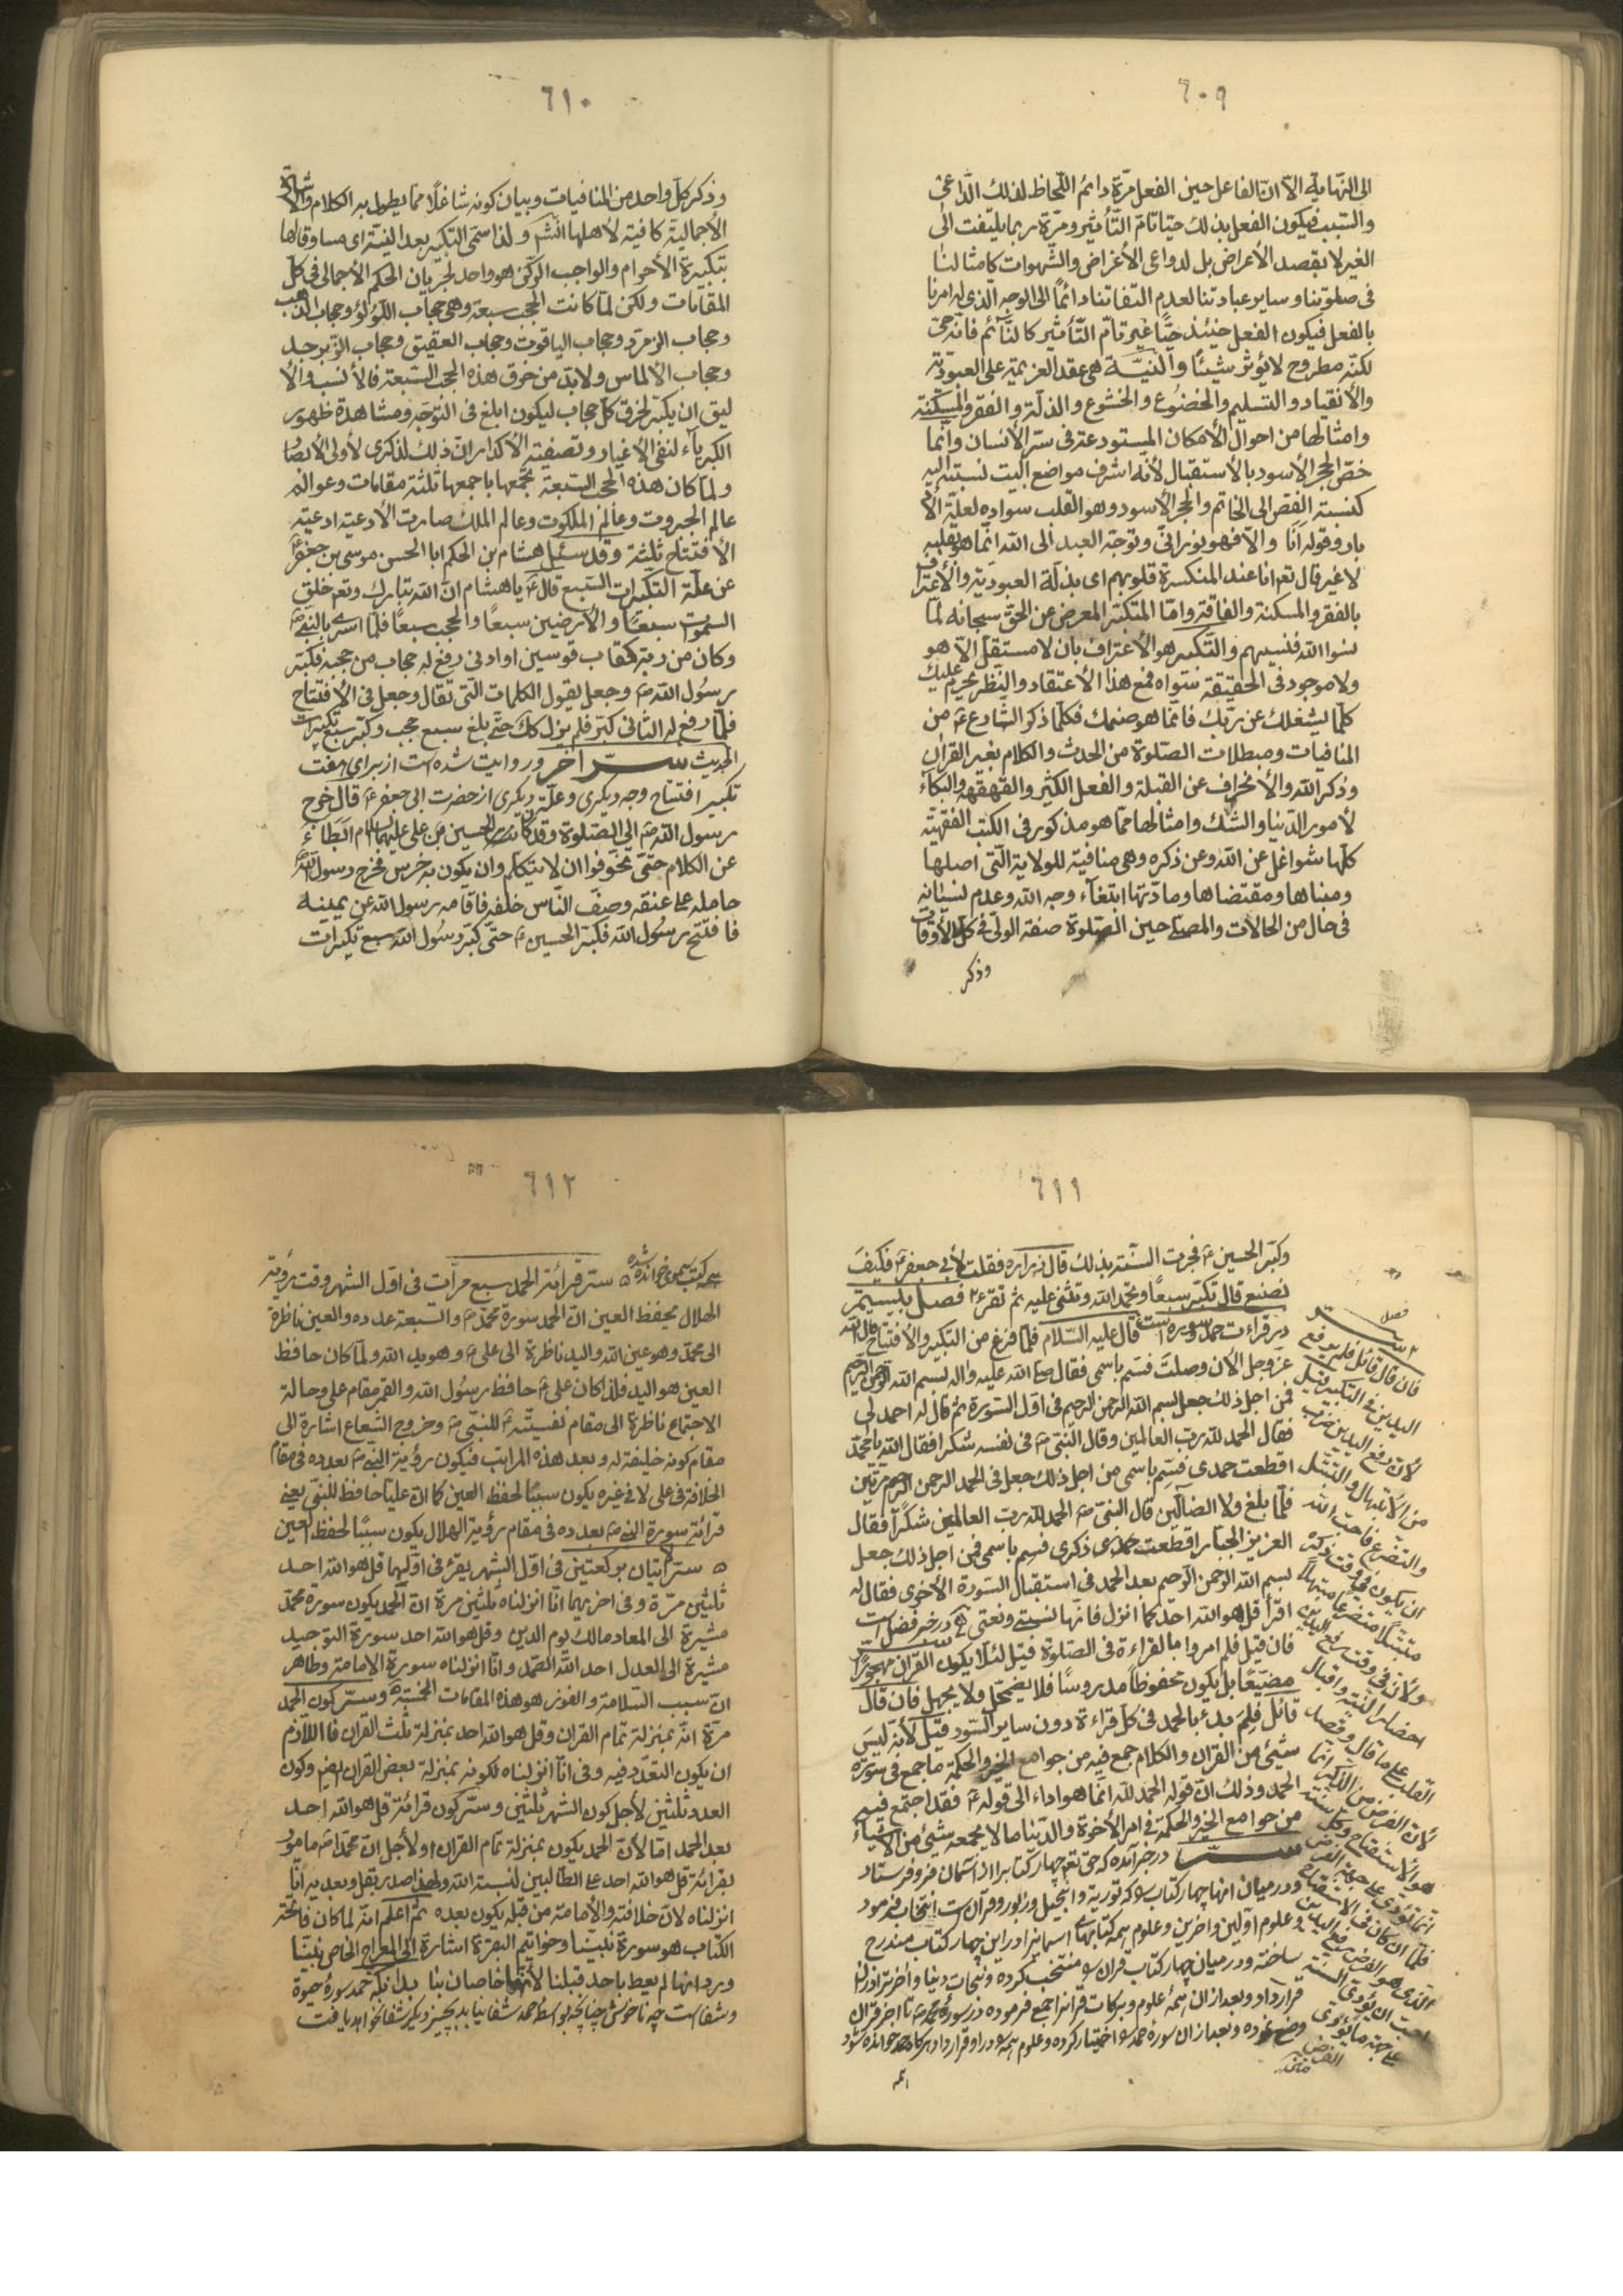 ٦٠٩
الى النهاية الا ان الفاعل حين الفعل مرة دائم اللحاظ لذلك الداعى
والسبب فيكون الفعل بذلك حيا تام التأثير ومرة ربما يلتفت الى
الغير لا بقصد الأعراض بل لدواعى الأغراض والشهوات كامثالنا
فى صلوتنا وساير عباداتنا لعدم التفاتنا دائما الى الوجه الذى له امرنا
بالفعل فيكون الفعل حينئذ حيا غير تام التأثير كالنائم فانه حى
لكنه مطروح لا يؤثر شيئا والنية هى عقد العزيمة على العبودية
والأنقياد والتسليم والخضوع والخشوع والذلة والفقر والمسكنة
وامثالها من احوال الأمكان المستودعة فى سر الأنسان وانما
خص الحجر الأسود بالأستقبال لأنه اشرف مواضع البيت نسبته اليه
كنسبة الفص الى الخاتم والحجر الأسود وهو القلب سواده لعلة الأ
باد وقوله انا والا فهو نورانى وتوجه العبد الى الله انما هو بقلبه
لا غير قال تع انا عند المنكسرة قلوبهم اى بذلة العبودية والأعتراف
بالفقر والمسكنة والفاقة واما المتكبر المعرض عن الحق سبحانه لما
نسوا الله فنسيهم والتكبير هو الأعتراف بان لا مستقل الا هو
ولا موجود فى الحقيقة سواه فمع هذا الأعتقاد والنظر يحرم عليك
كلما يشغلك عن ربك فانما هو صنمك فكلما ذكر الشارع ع من
المنافيات ومبطلات الصلوة من الحدث والكلام بغير القران
وذكر الله والأنحراف عن القبلة والفعل الكثير والقهقهة والبكاء
لأمور الدنيا والشك وامثالها مما هو مذكور فى الكتب الفقهية
كلها شواغل عن الله وعن ذكره وهى منافية للولاية التى اصلها
ومبناها ومقتضاها ومادتها ابتغاء وجه الله وعدم نسيانه
فى حال من الحالات والمصلى حين الصلوة صفة الولى فى كل الأوقات
وذكر
٦١٠
وذكر كل واحد من المنافيات وبيان كونه شاغلا مما يطول به الكلام والأشارة
الأجمالية كافية لأهلها انش و لذا سمى التكبير بعد النية اى مساوقالها
بتكبيرة الأحرام والواجب الركن هو واحد لجريان الحكم الأجمالى فى كل
المقامات ولكن لما كانت الحجب سبعة وهى حجاب اللؤلؤ وحجاب الذهب
وحجاب الزمرد وحجاب الياقوت وحجاب العقيق وحجاب الزبرجد
وحجاب الألماس ولابد من خرق هذه الحجب السبعة فالأنسب والأ
ليق ان يكبر لخرق كل حجاب ليكون ابلغ فى التوجه ومشاهدة ظهور
الكبرياء لنفى الأغيار وتصفية الأكدار ان ذلك لذكرى لأولى الأبصار
ولما كان هذه الحجب السبعة تجمعها باجمعها ثلثة مقامات وعوالم
عالم الجبروت وعالم الملكوت وعالم الملك صارت الأدعية ادعية
الأفتتاح ثلثة وقد سئل هشام بن الحكم ابا الحسن موسى بن جعفر ع
عن علة التكبيرات السبع قال ع يا هشام ان الله تبارك وتع خلق
السموات سبعا والأرضين سبعا والحجب سبعا فلما اسرى بالنبى ص
وكان من ربه كقاب قوسين او ادنى رفع له حجاب من حجبه فكبر
رسول الله ص وجعل يقول الكلمات التى تقال وجعل فى الأفتتاح
فلما رفع له الثانى كبر فلم يزل كك حتى بلغ سبع حجب وكبر سبع تكبيرات
الحديث سر اخر وروايت شده است از براى هفت
تكبير افتتاح وجه ديكرى وعلة ديكرى از حضرت ابى جعفر ع قال خرج
رسول الله ص الى الصلوة وقد كان الحسين بن على عليهما السلام ابطاء
عن الكلام حتى تخوفوا ان لا يتكلم وان يكون به خرس فخرج رسول الله ص
حامله على عنقه وصف الناس خلفه فاقامه رسول الله عن يمينه
فافتتح رسول الله فكبر الحسين ع حتى كبر رسول الله سبع تكبيرات
٦١١
وكبر الحسين ع فجرت السنة بذلك قال زرارة فقلت لأبى جعفر ع فكيف
نصنع قال تكبر سبعا وتحمد الله وتثنى عليه ثم تقرء فصل بيستم
در قراءت حمد وسوره است قال عليه السلام فلما فرغ من التكبير والأفتتاح قال الله
عز وجل الأن وصلت فسم باسمى فقال صلى الله عليه واله بسم الله الرحمن الرحيم
فمن اجل ذلك جعل بسم الله الرحمن الرحيم فى اول السورة ثم قال له احمد لى
فقال الحمد لله رب العالمين وقال النبى ص فى نفسه شكرا فقال الله يا محمد
اقطعت حمدى فسم باسمى من اجل ذلك جعل فى الحمد الرحمن الرحيم مرتين
فلما بلغ ولا الضالين قال النبى ص الحمد لله رب العالمين شكرا فقال
العزيز الجبار اقطعت ذكرى فسم باسمى فمن اجل ذلك جعل
بسم الله الرحمن الرحيم بعد الحمد فى استقبال السورة الأخرى فقال له
اقرأ قل هو الله احد كما انزل فانها نسبتى ونعتى در خبر فضل است
فان قيل فلم امروا بالقراءة فى الصلوة قيل لئلا يكون القران مهجورا
مضيعا بل يكون محفوظا مدروسا فلا يضمحل ولا يجهل فان قال
قائل فلم بدء بالحمد فى كل قراءة دون ساير السور قيل لأنه ليس
شيئ من القران والكلام جمع فيه من جوامع الخير والحكمة ما جمع فى سورة
الحمد وذلك ان قوله الحمد لله انما هو اداء الى قوله ع فقد اجتمع فيه
من جوامع الخير والحكمة فى امر الأخرة والدنيا ما لا يجمعه شيئ من الأشياء
سر در خبر امده كه حق تع چهار كتاب را از آسمان فرو فرستاد
ودر ميان انها چهار كتاب را كه تورية وانجيل وزبور وقرآن است انتخاب فرمود
وعلوم اولين واخرين وعلوم همه كتابهاى اسمانيرا در اين چهار كتاب مندرج
ساخته ودر ميان چهار كتاب قران را منتخب كرده ونجات دنيا واخرترا در انها
قرار داد وبعد از ان همه علوم وبركات قرانرا جمع فرموده در سوره محمد ص تا اخر قران
وضع نموده وبعد از ان سوره حمد را اختيار كرده وعلوم همه را در او قرار داد هر كاه حمد خوانده شود
فان قال قائل فلم يرفع
اليدين فى التكبير قيل
لأن رفع اليدين ضرب
من الأبتهال والتبتل
والتضرع فاحب الله
ان يكون فى وقت ذكره
متبتلا متضرعا مبتهلا
ولأن فى وقت رفع اليدين
احضار النية واقبال
القلب على ما قال وقصد
لأن الفرض من الذكر انما
هو الأستفتاح وكل سنة
انما تؤدى على جهة الفرض
فلما ان كان فى الأستفتاح
الذى هو الفرض رفع اليدين
احب ان يؤدوا السنة
على جهة ما يؤدى
الفرض
٦١٢
همه كتب سماوى خوانده شده سر قرائة الحمد سبع مرات فى اول الشهر وقت رؤية
الهلال يحفظ العين ان الحمد سورة محمد ص والسبعة عدده والعين ناظرة
الى محمد وهو عين الله واليد ناظرة الى على ع وهو يد الله ولما كان حافظ
العين هو اليد فلذا كان على ع حافظ رسول الله والقمر مقام على وحالة
الاجتماع ناظرة الى مقام نفسيته ع للنبى ص وخروج الشعاع اشارة الى
مقام كونه خليفة له وبعد هذه المراتب فيكون رؤية النبى ص بعدده فى مقام
الخلافة فى على لا فى غيره يكون سببا لحفظ العين كما ان عليا حافظ للنبى يعنى
قرائة سورة النبى ص بعدده فى مقام رؤية الهلال يكون سببا لحفظ العين
سر اتيان بركعتين فى اول الشهر يقرء فى اوليهما قل هو الله احد
ثلثين مرة وفى اخريهما انا انزلناه ثلثين مرة ان الحمد يكون سورة محمد
مشيرة الى المعاد مالك يوم الدين وقل هو الله احد سورة التوحيد
مشيرة الى العدل احد الله الصمد وانا انزلناه سورة الامامة وظاهر
ان سبب السلامة والفوز هو هذه المقامات الخمسة وسر كون الحمد
مرة انه بمنزلة تمام القران وقل هو الله احد بمنزلة ثلث القران فاللازم
ان يكون التعدد فيه وفى انا انزلناه لكونه بمنزلة بعض القران ايضا وكون
العدد ثلثين لأجل كون الشهر ثلثين وسر كون قرائة قل هو الله احد
بعد الحمد اما لأن الحمد يكون بمنزلة تمام القران او لأجل ان محمدا ص مامور
بقرائة قل هو الله احد على الطالبين لنسبة الله ولهذا صدر بقل وبعديه انا
انزلناه لان خلافته والأمامة من قبله يكون بعده ثم اعلم انه لما كان فاتحة
الكتاب هو سورة نبينا وخواتيم البقرة اشارة الى المعراج الخاص نبينا
ورد انها لم يعط باحد قبلنا لأنهما خاصان بنا بدانكه حمد سوره حيوة
وشفاست چه ناخوش چنانچه بواسطه حمد شفا نيابد بچيز ديكر شفا نخواهد يافت